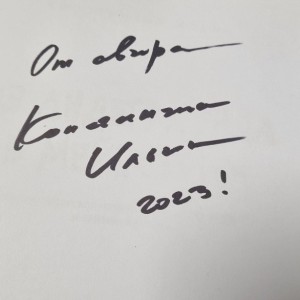 От автора
Константина
2023!